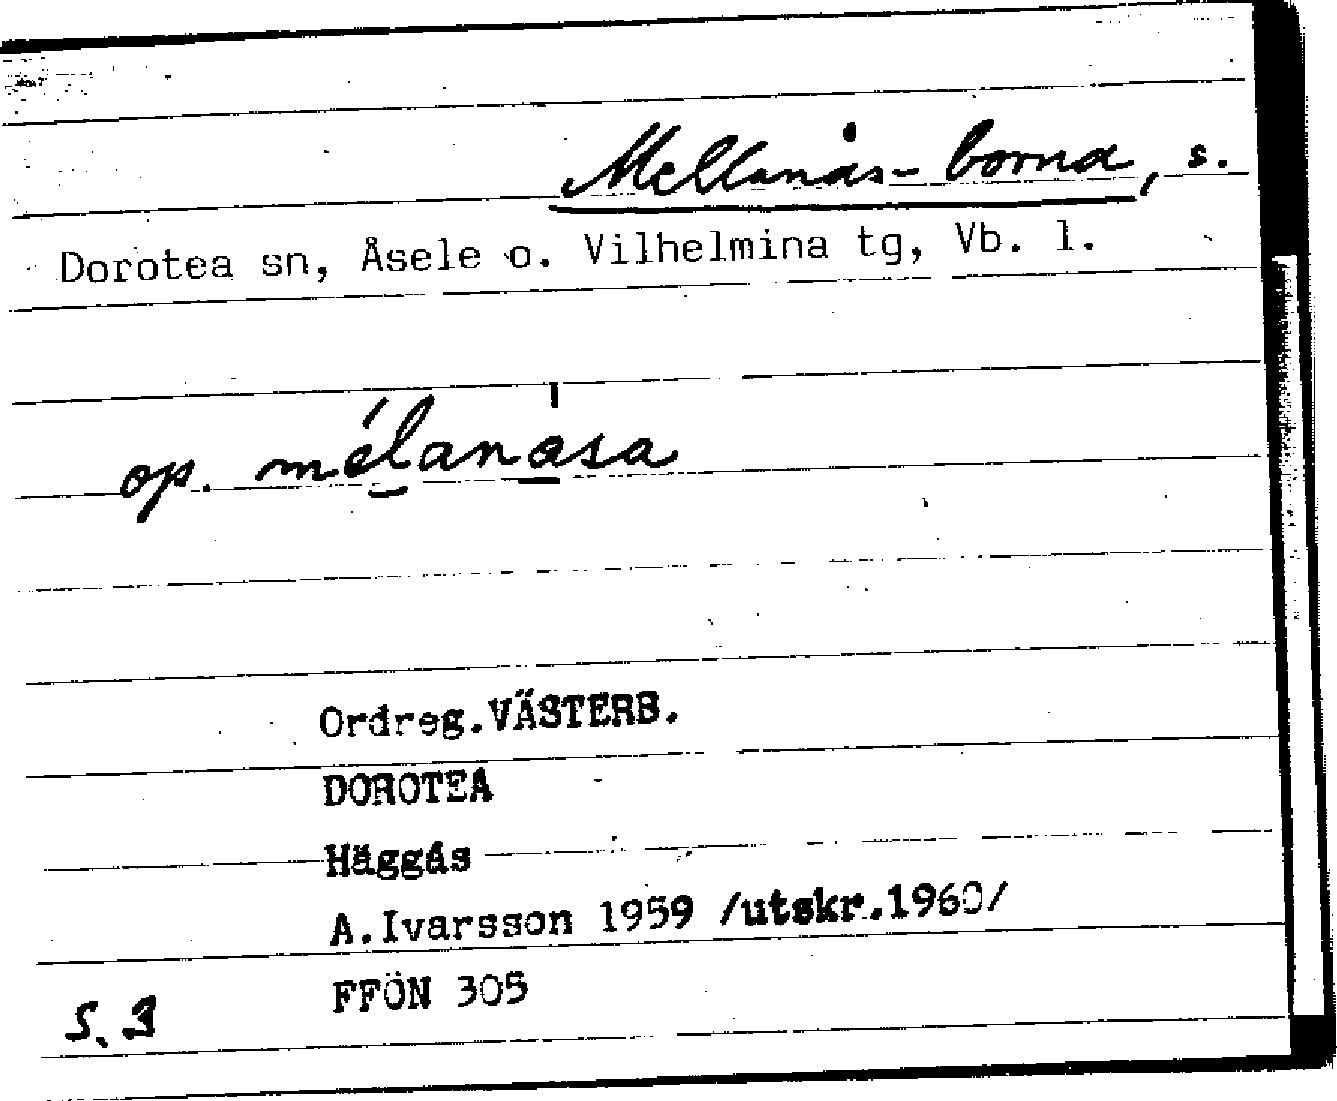 Mellanås-borna, s.
Dorotea sn, Åsele o. Vilhelmina tg, Vb. l.
op. mélanåsa
Ordreg. VÄSTERB.
DOROTEA
Häggås
A. Ivarsson 1959 /utskr. 1960/
FFÖN 305
S. 3